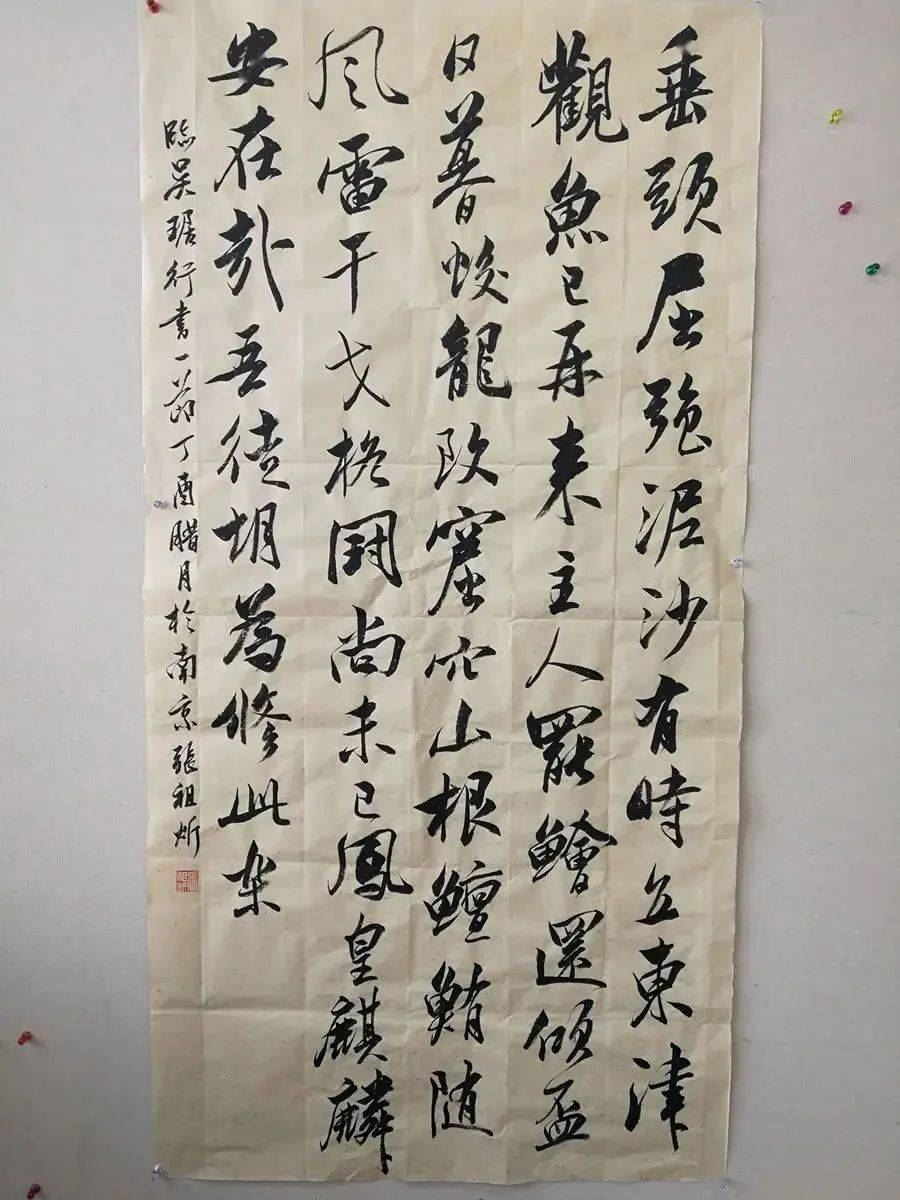 垂頭屈强泥沙有時立東津
觀魚已再来主人罷鱠還傾盃
日暮蛟龍改窟穴山根鱣鮪随
风雷干戈格鬪尚未已鳳皇麒麟
安在哉吾徒胡為縱此樂
臨吴琚行書一節丁酉腊月於南京張祖炘